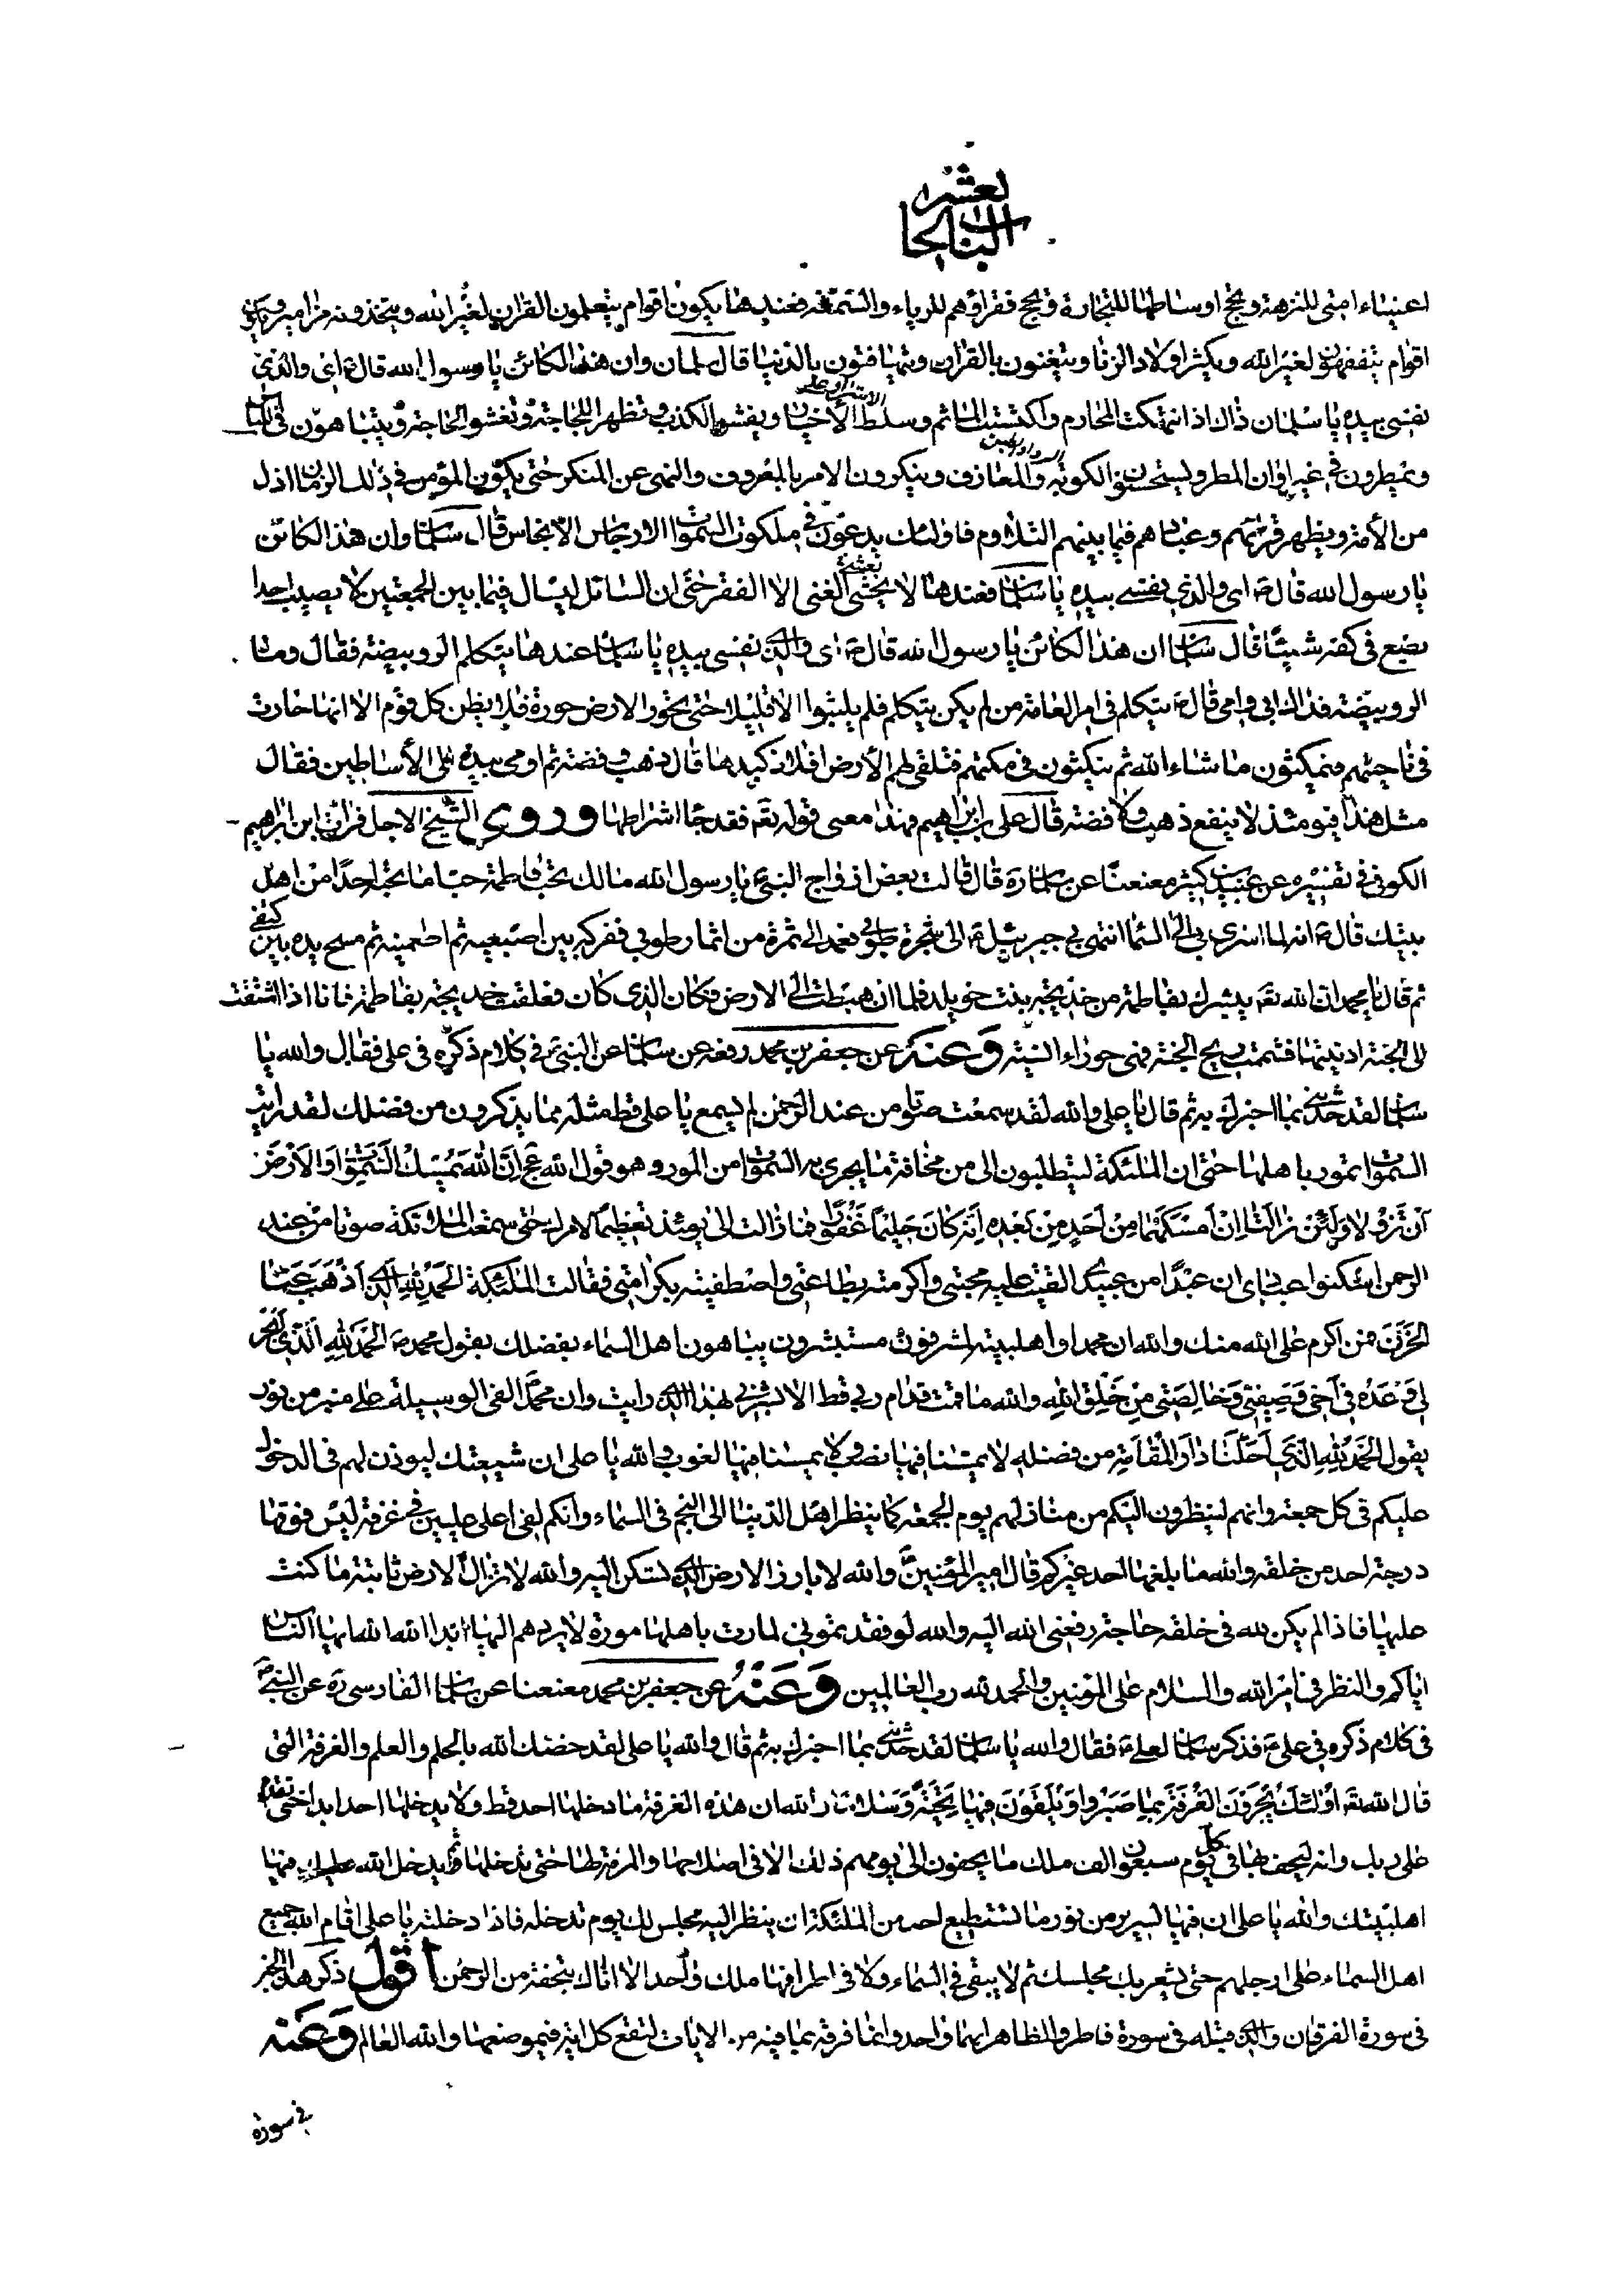 الباب الحادیعشر
اغنیاء امتی للنزهة ویحج اوساطها للتجارة ویحج فقراؤهم للریاء والسمعة فعندها یکون اقوام یتعلمون القران لغیر الله ویتخذونه مزامیر ویکون
اقوام یتفقهون لغیر الله ویکثر اولاد الزنا ویتغنون بالقران ویتهافتون بالدنیا قال سلمان وان هذا لکائن یا رسول الله قال ص ای والذی
نفسی بیده یا سلمان ذاک اذا انتهکت المحارم واکتسبت الماثم وسلط الاشرار علی الاخیار ویفشو الکذب وتظهر اللجاجة وتغشو الحاجة ویتباهون فی اللباس
ویمطرون فی غیر اوان المطر ویستحسنون الکوبة والمعازف وینکرون الامر بالمعروف والنهی عن المنکر حتی یکون المؤمن فی ذلک الزمان اذل
من الأمة ویظهر قرائهم وعبادهم فیما بینهم التلاوم فاولئک یدعون فی ملکوت السموات الارجاس الانجاس قال سلمان وان هذا لکائن
یا رسول الله قال ص ای والذی نفسی بیده یا سلمان فعندها لا یخشی الغنی الا الفقر حتی ان السائل لیسال فیما بین الجمعتین لا یصیب احدا
یضع فی کفه شیئا قال سلمان ان هذا لکائن یا رسول الله قال ص ای والذی نفسی بیده یا سلمان عندها یتکلم الرویبضة فقال وما
الرویبضة فداک ابی وامی قال ص یتکلم فی امر العامة من لم یکن یتکلم فلم یلبثوا الا قلیلا حتی تخور الارض خورة فلا یظن کل قوم الا انها خارت
فی ناحیتهم فیمکثون ما شاء الله ثم ینکثون فی مکثهم فتلقی لهم الأرض افلاذ کبدها قال ذهب وفضة ثم اومی بیده الی الأساطین فقال
مثل هذا فیومئذ لا ینفع ذهب ولا فضة قال علی بن ابراهیم فهذا معنی قوله تع فقد جاء اشراطها وروی الشیخ الاجل فرات ابن ابراهیم
الکوفی فی تفسیره عن عبید بن کثیر معنعنا عن سلمان ره قال قالت بعض ازواج النبی ص یا رسول الله مالک تحب فاطمة حبا ما تحب احدا من اهل
بیتک قال ص انه لما اسری بی الی السماء انتهی بی جبرئیل ع الی شجرة طوبی فعمد الی ثمرة من اثمار طوبی ففرکه بین اصبعیه ثم اطعمنیه ثم مسح یده بین کتفی
ثم قال یا محمد ان الله تع یبشرک بفاطمة من خدیجة بنت خویلد فلما ان هبطت الی الارض فکان الذی کان فعلقت خدیجة بفاطمة فانا اذا اشتقت
الی الجنة ادنیتها فشممت ریح الجنة فهی حوراء انسیة وعنه عن جعفر بن محمد رفعه عن سلمان عن النبی ص فی کلام ذکره فی علی فقال والله یا
سلمان لقد حدثنی بما اخبرک به ثم قال یا علی والله لقد سمعت صوتا من عند الرحمن لم یسمع یا علی قط مثله مما یذکرون من فضلک لقد رایت
السموات تمور باهلها حتی ان الملئکة لیتطلبون الی من مخافة ما یجری به السموات من المور وهو قول الله عج ان الله یمسک السموات والارض
ان تزولا ولئن زالتا ان امسکهما من احد من بعده انه کان حلیما غفورا فما زالت الی یومئذ تعظیما لامرک حتی سمعت الملائکة صوتا من عند
الرحمن اسکنوا عبادی ان عبدا من عبیدی القیت علیه محبتی واکرمته بطاعتی واصطفیته بکرامتی فقالت الملئکة الحمد لله الذی اذهب عنا
الحزن فمن اکرم علی الله منک والله ان محمدا واهلبیته لمشرفون مستبشرون یباهون اهل السماء بفضلک یقول محمد ص الحمد لله الذی انجز
لی وعده فی اخی وصفیی وخالصتی من خلق الله والله ما قمت قدام ربی قط الا بشرنی بهذا الذی رایت وان محمدا لفی الوسیلة علی منبر من نور
یقول الحمد لله الذی احلنا دار المقامة من فضله لا یمسنا فیها نصب ولا یمسنا فیها لغوب والله یا علی ان شیعتک لیؤذن لهم فی الدخول
علیکم فی کل جمعة وانهم لینظرون الیکم من منازلهم یوم الجمعة کما ینظر اهل الدنیا الی النجم فی السماء وانکم لفی اعلی علیین فی غرفة لیس فوقها
درجة احد من خلقه والله ما بلغها احد غیرکم قال امیر المؤمنین والله لا بارز الارض الذی لتسکن الیه والله لا تزال الارض ثابتة ما کنت
علیها فاذا لم یکن لله فی خلقه حاجة رفعنی الله الیه والله لو فقدتمونی لمارت باهلها مورة لا یردهم الیها ابدا الله الله ایها الناس
ایاکم والنظر فی امر الله والسلام علی المؤمنین والحمد لله رب العالمین وعنه عن جعفر بن محمد معنعنا عن سلمان الفارسی ره عن النبی ص
فی کلام ذکره فی علی ع فذکر سلمان لعلی ع فقال والله یا سلمان لقد حدثنی بما اخبرک به ثم قال والله یا علی لقد خصک الله بالحلم والعلم والغرفة التی
قال الله تع اولئک یجزون الغرفة بما صبروا ویلقون فیها تحیة وسلاما والله ان هذه الغرفة ما دخلها احد قط ولا یدخلها احد ابدا حتی تقوم
علی ربک وانه لیحف بها فی کل یوم سبعون الف ملک ما یحفون الی یومهم ذلک الا فی اصلاحها والمرمة لها حتی تدخلها ثم یدخل الله علیک فیها
اهلبیتک والله یا علی ان فیها لسریر من نور ما تستطیع احد من الملئکة ان ینظر الیه مجلس لک یوم تدخله فاذا دخلته یا علی اقام الله جمیع
اهل السماء علی ارجلهم حتی یستقر بک مجلسک ثم لا یبقی فی السماء ولا فی اطرافها ملک واحد الا اتاک بتحفة من الرحمن اقول ذکر هذا الخبر
فی سورة الفرقان والذی قبله فی سورة فاطر والظاهر انهما واحد وانما فرقه بما فیه من الایات لتقع کل ایة فی موضعها والله العالم وعنه
فی سورة